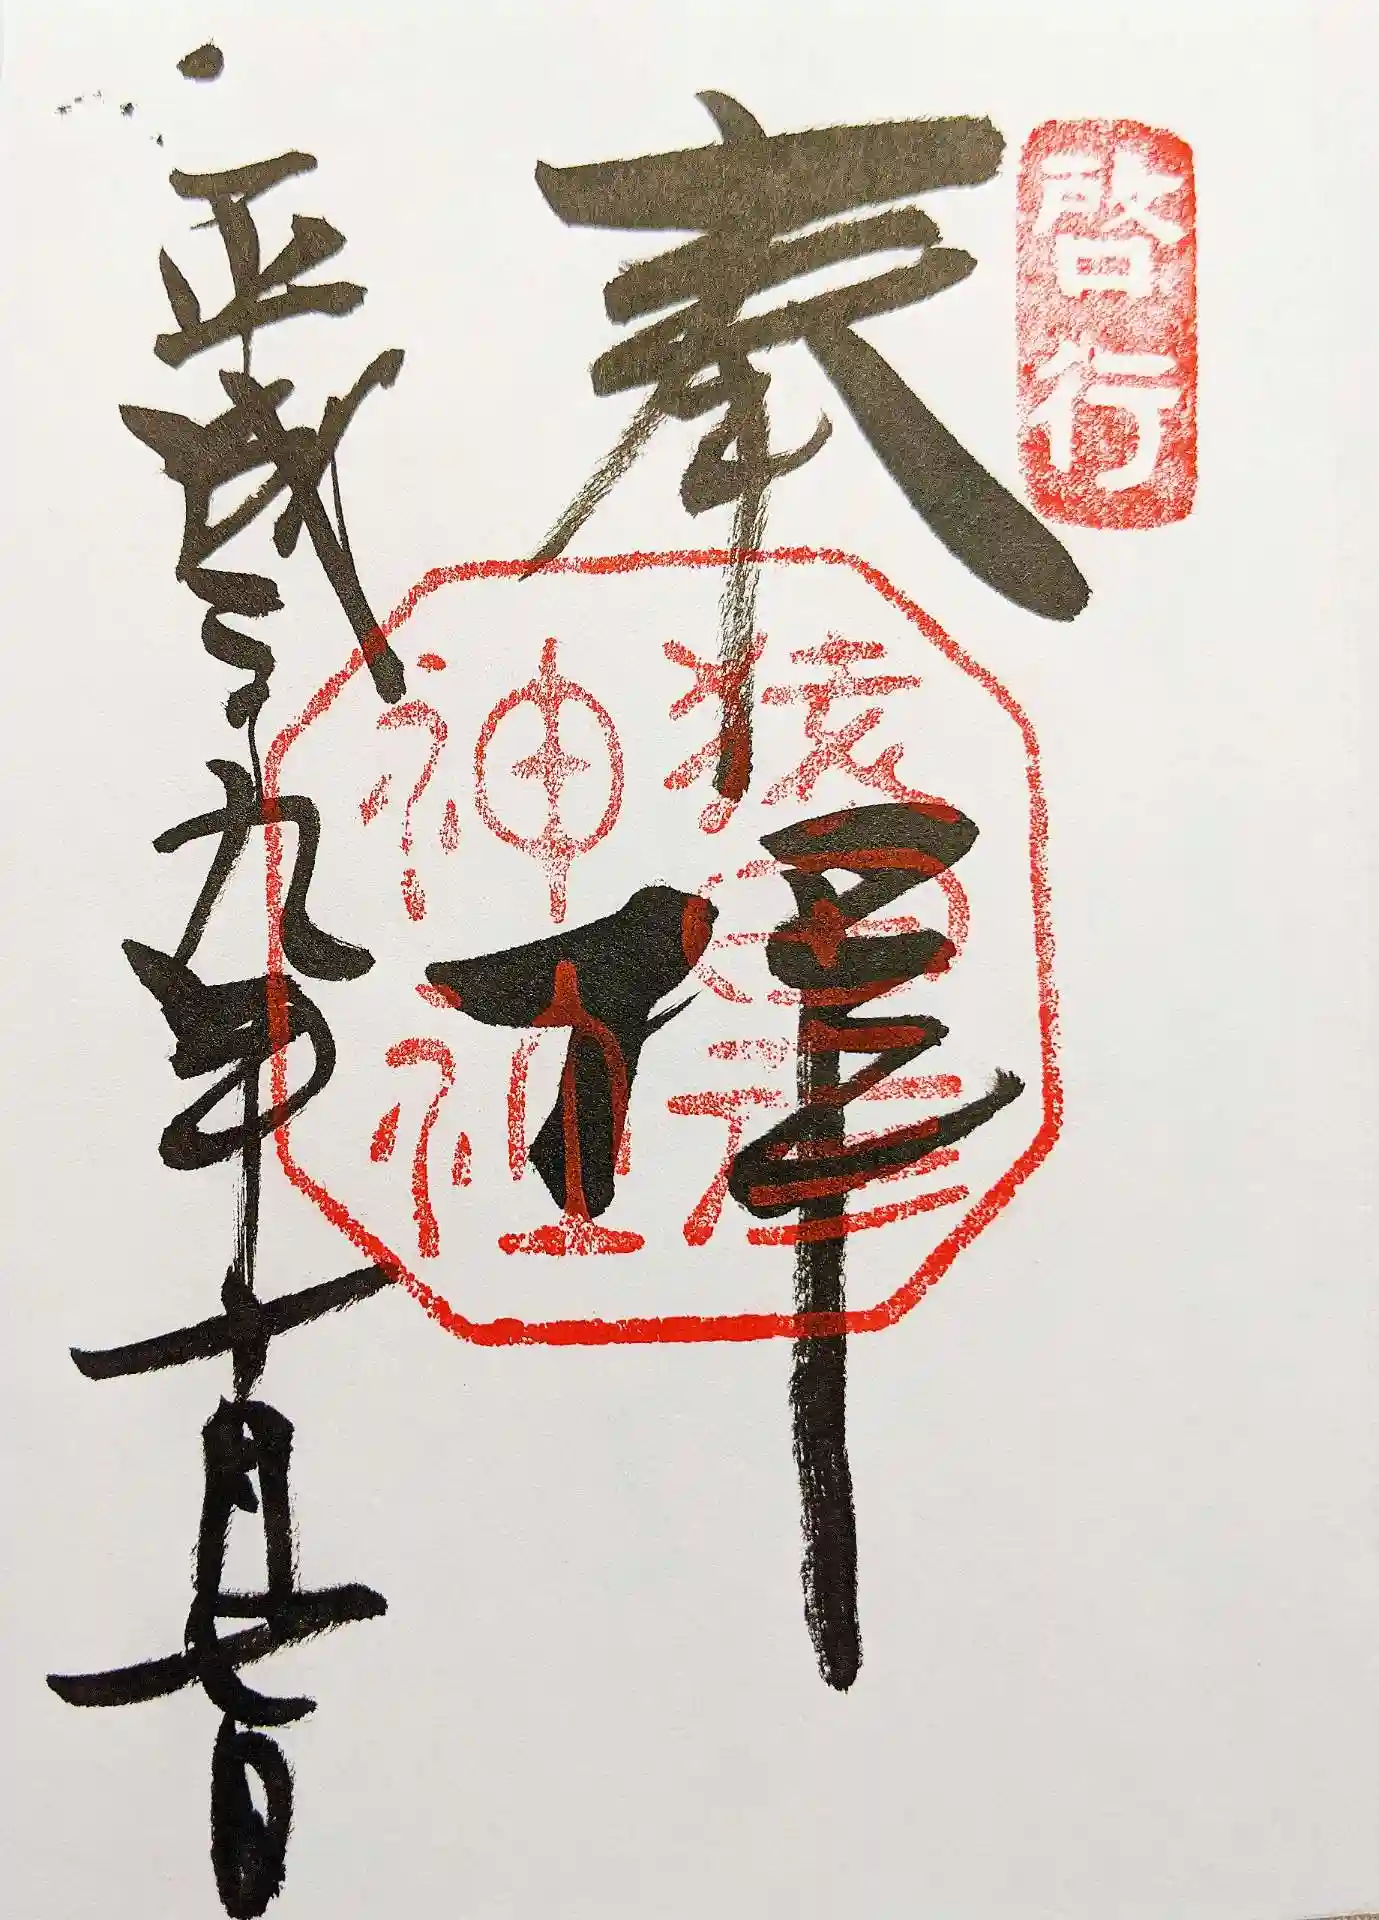 啓行
奉拝
猿田彦
神社
平成二十九年十月七日